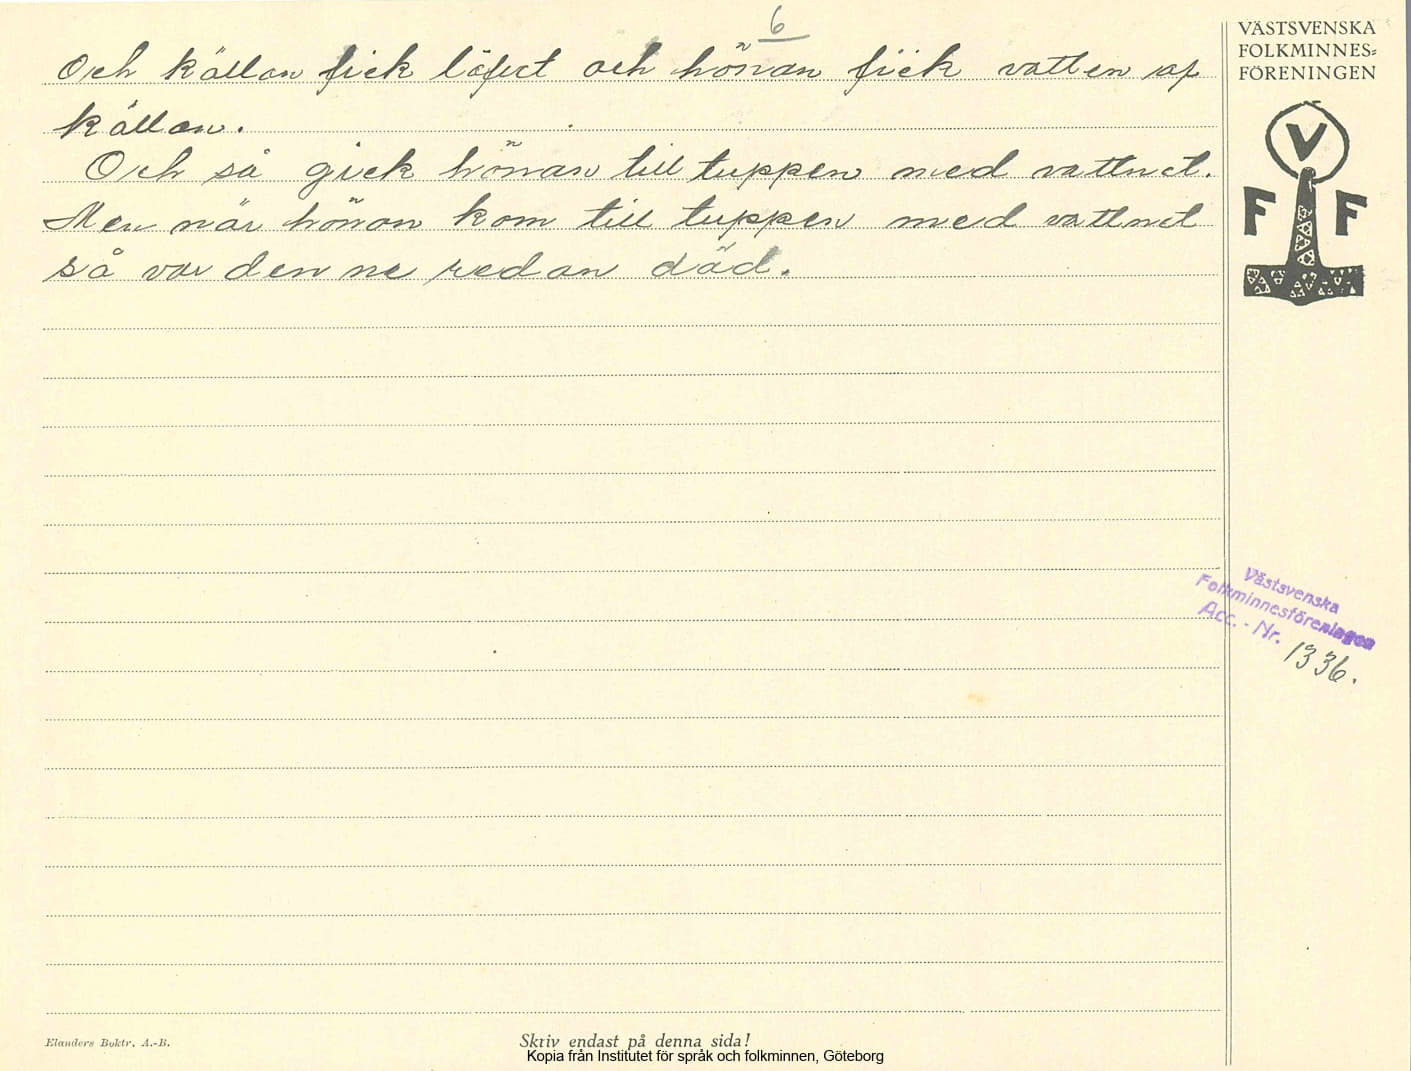 6
Och källan fick löfvet och hönan fick vatten af
källan.
Och så gick hönan till tuppen med vattnet.
Men när hönan kom till tuppen med vattnet
så var denne redan död.
VÄSTSVENSKA
FOLKMINNES=
FÖRENINGEN
V
F F
Västsvenska
Folkminnesföreningen
Acc. - Nr. 1336.
Elanders Boktr. A.-B.
Skriv endast på denna sida!
Kopia från Institutet för språk och folkminnen, Göteborg